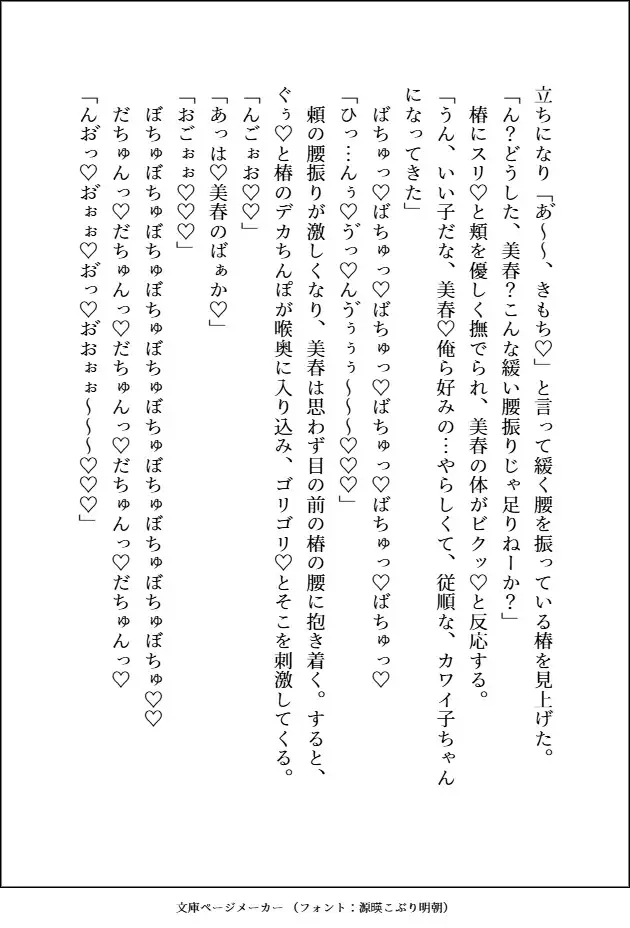 立ちになり「あ゛～～、きもち♡」と言って緩く腰を振っている椿を見上げた。
「ん？どうした、美春？こんな緩い腰振りじゃ足りねーか？」
　椿にスリ♡と頬を優しく撫でられ、美春の体がビクッ♡と反応する。
「うん、いい子だな、美春♡俺ら好みの…やらしくて、従順な、カワイ子ちゃん
になってきた」
　ばちゅっ♡ばちゅっ♡ばちゅっ♡ばちゅっ♡ばちゅっ♡ばちゅっ♡
「ひっ…んぅ♡ゔっ♡んゔぅぅぅ～～～♡♡♡」
　頼の腰振りが激しくなり、美春は思わず目の前の椿の腰に抱き着く。すると、
ぐぅ♡と椿のデカちんぽが喉奥に入り込み、ゴリゴリ♡とそこを刺激してくる。
「んごぉお♡♡」
「あっは♡美春のばぁか♡」
「おごぉぉ♡♡♡」
　ぼちゅぼちゅぼちゅぼちゅぼちゅぼちゅぼちゅぼちゅぼちゅぼちゅ♡♡
　だちゅんっ♡だちゅんっ♡だちゅんっ♡だちゅんっ♡だちゅんっ♡
「んお゛っ♡お゛ぉぉ♡お゛っ♡お゛おぉぉ～～～♡♡♡」
文庫ページメーカー（フォント：源暎こぶり明朝）